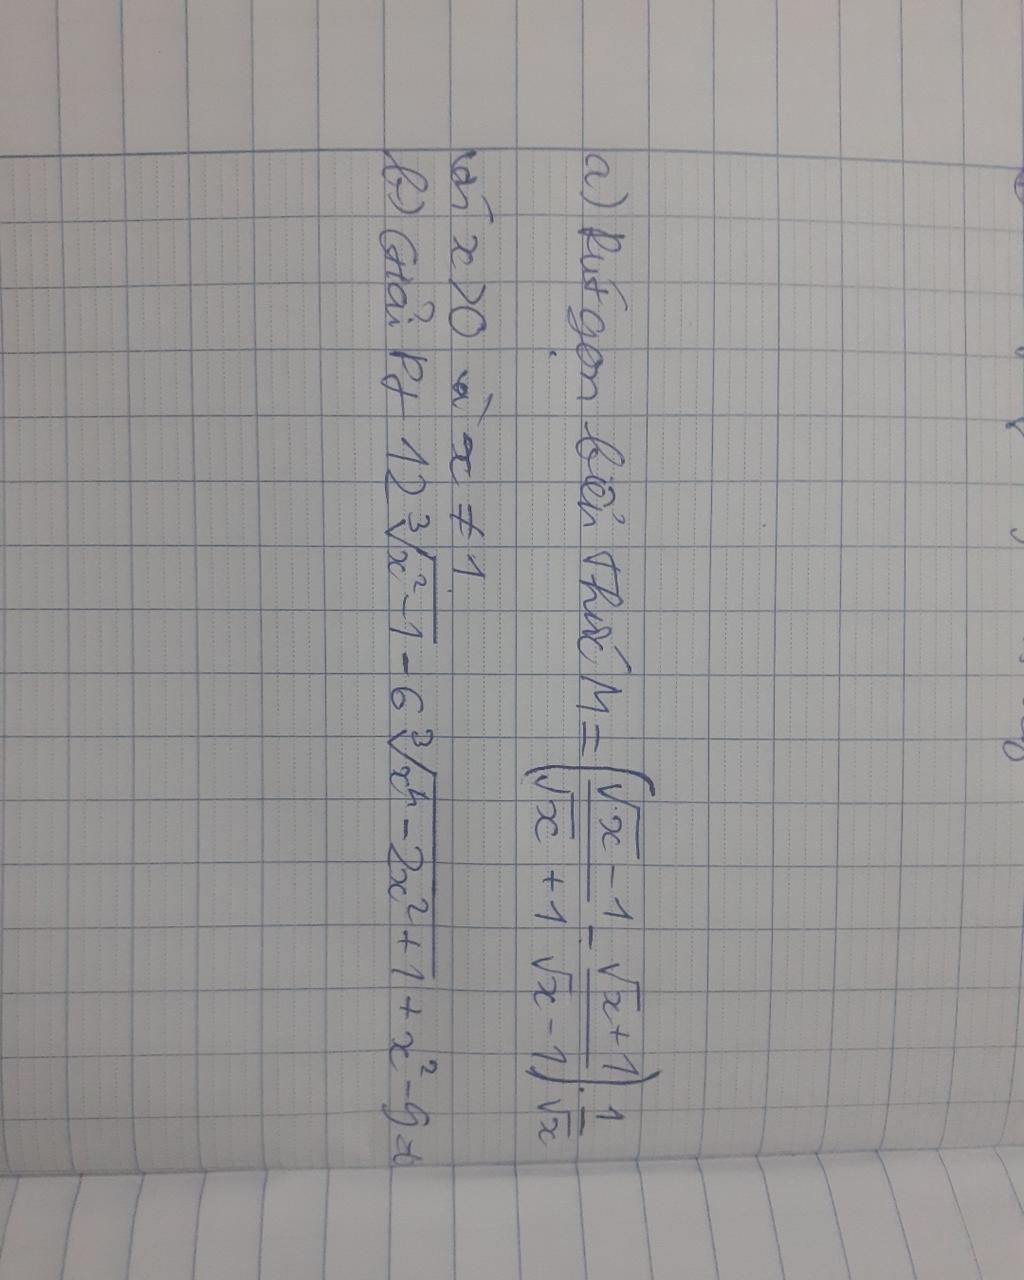 a) Rút gọn biển thức M = (√x - 1 / √x + 1 - √x + 1 / √x - 1) . 1 / √x
với x > 0 và x ≠ 1
b) Giải Pt 12∛x² - 1 - 6∛x⁴ - 2x² + 1 + x² - 9 =